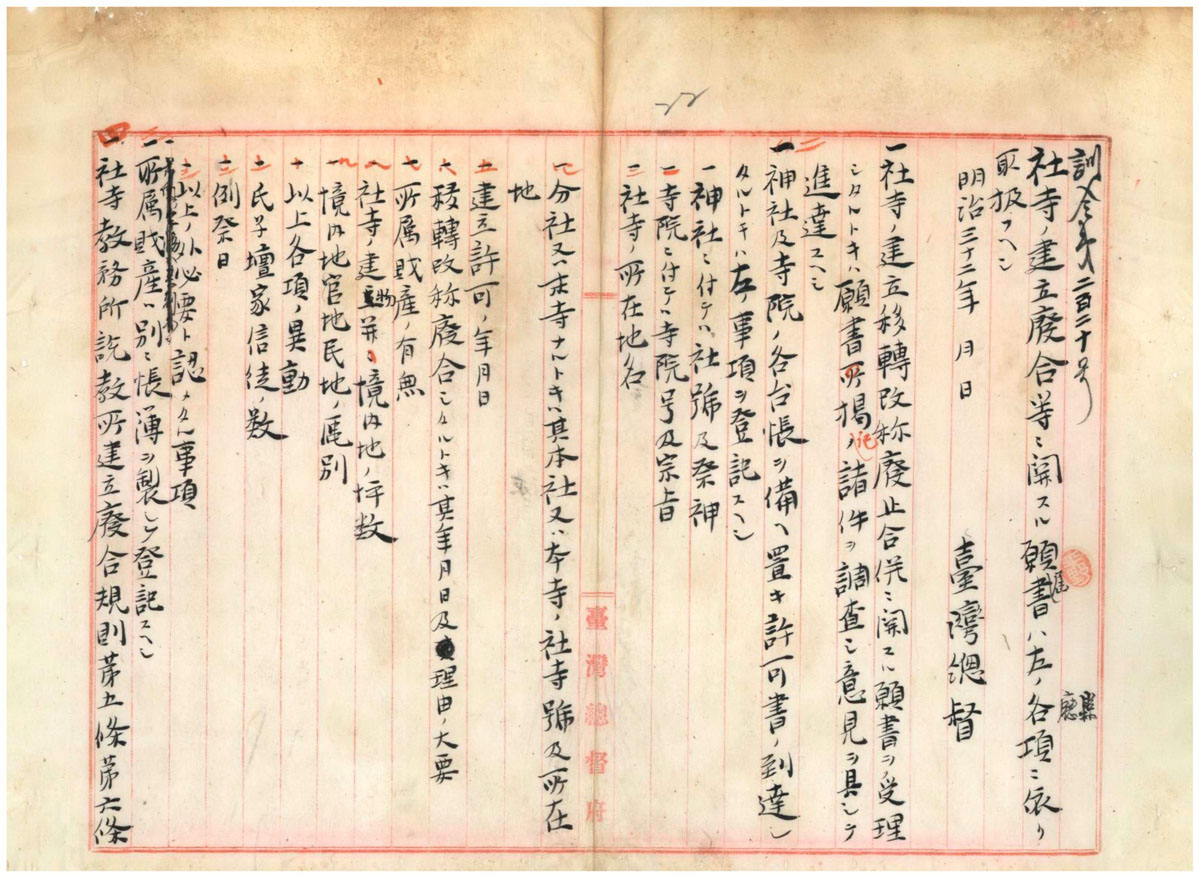 22
訓令第二百二十号
縣
廳
社寺ノ建立廢合等ニ関スル願書届ハ左ノ各項ニ依リ
取扱フヘシ
明治三十二年 月 日
臺灣總督
一社寺ノ建立移轉改称廢止合併ニ関スル願書ヲ受理
シタルトキハ願書所揭記ノ諸件ヲ調査シ意見ヲ具シテ
進達スヘシ
二
神社及寺院ノ各台帳ヲ備ヘ置キ許可書ノ到達シ
タルトキハ左ノ事項ヲ登記スヘシ
一神社ニ付テハ社號及祭神
二寺院ニ付テハ寺院号及宗旨
三社寺ノ所在地名
分社又ハ末寺ナルトキハ其本社又ハ本寺ノ社寺號及所在
地
五建立許可ノ年月日
六移轉改称廢合シタルトキハ其年月日及理由ノ大要
七所属財産ノ有無
八社寺ノ建物並ニ境内地ノ坪数
九境内地官地民地ノ區別
十以上各項ノ異動
氏子壇家信徒ノ数
例祭日
以上ノ外必要ト認メタル事項
所属財産ハ別ニ帳薄ヲ製シテ登記スヘシ
四
社寺教務所説教所建立廢合規則第五條第六條
臺灣總督府